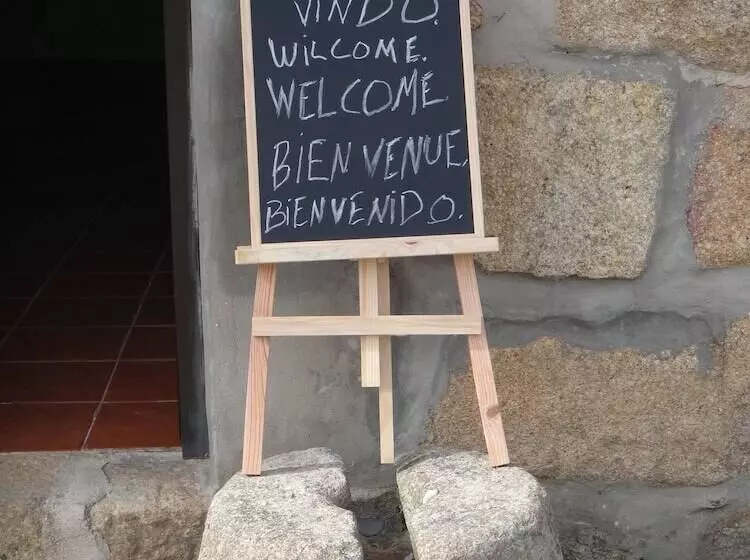 VINDO.
WILCOME.
WELCOME
BIENVENUE.
BIENVENIDO.